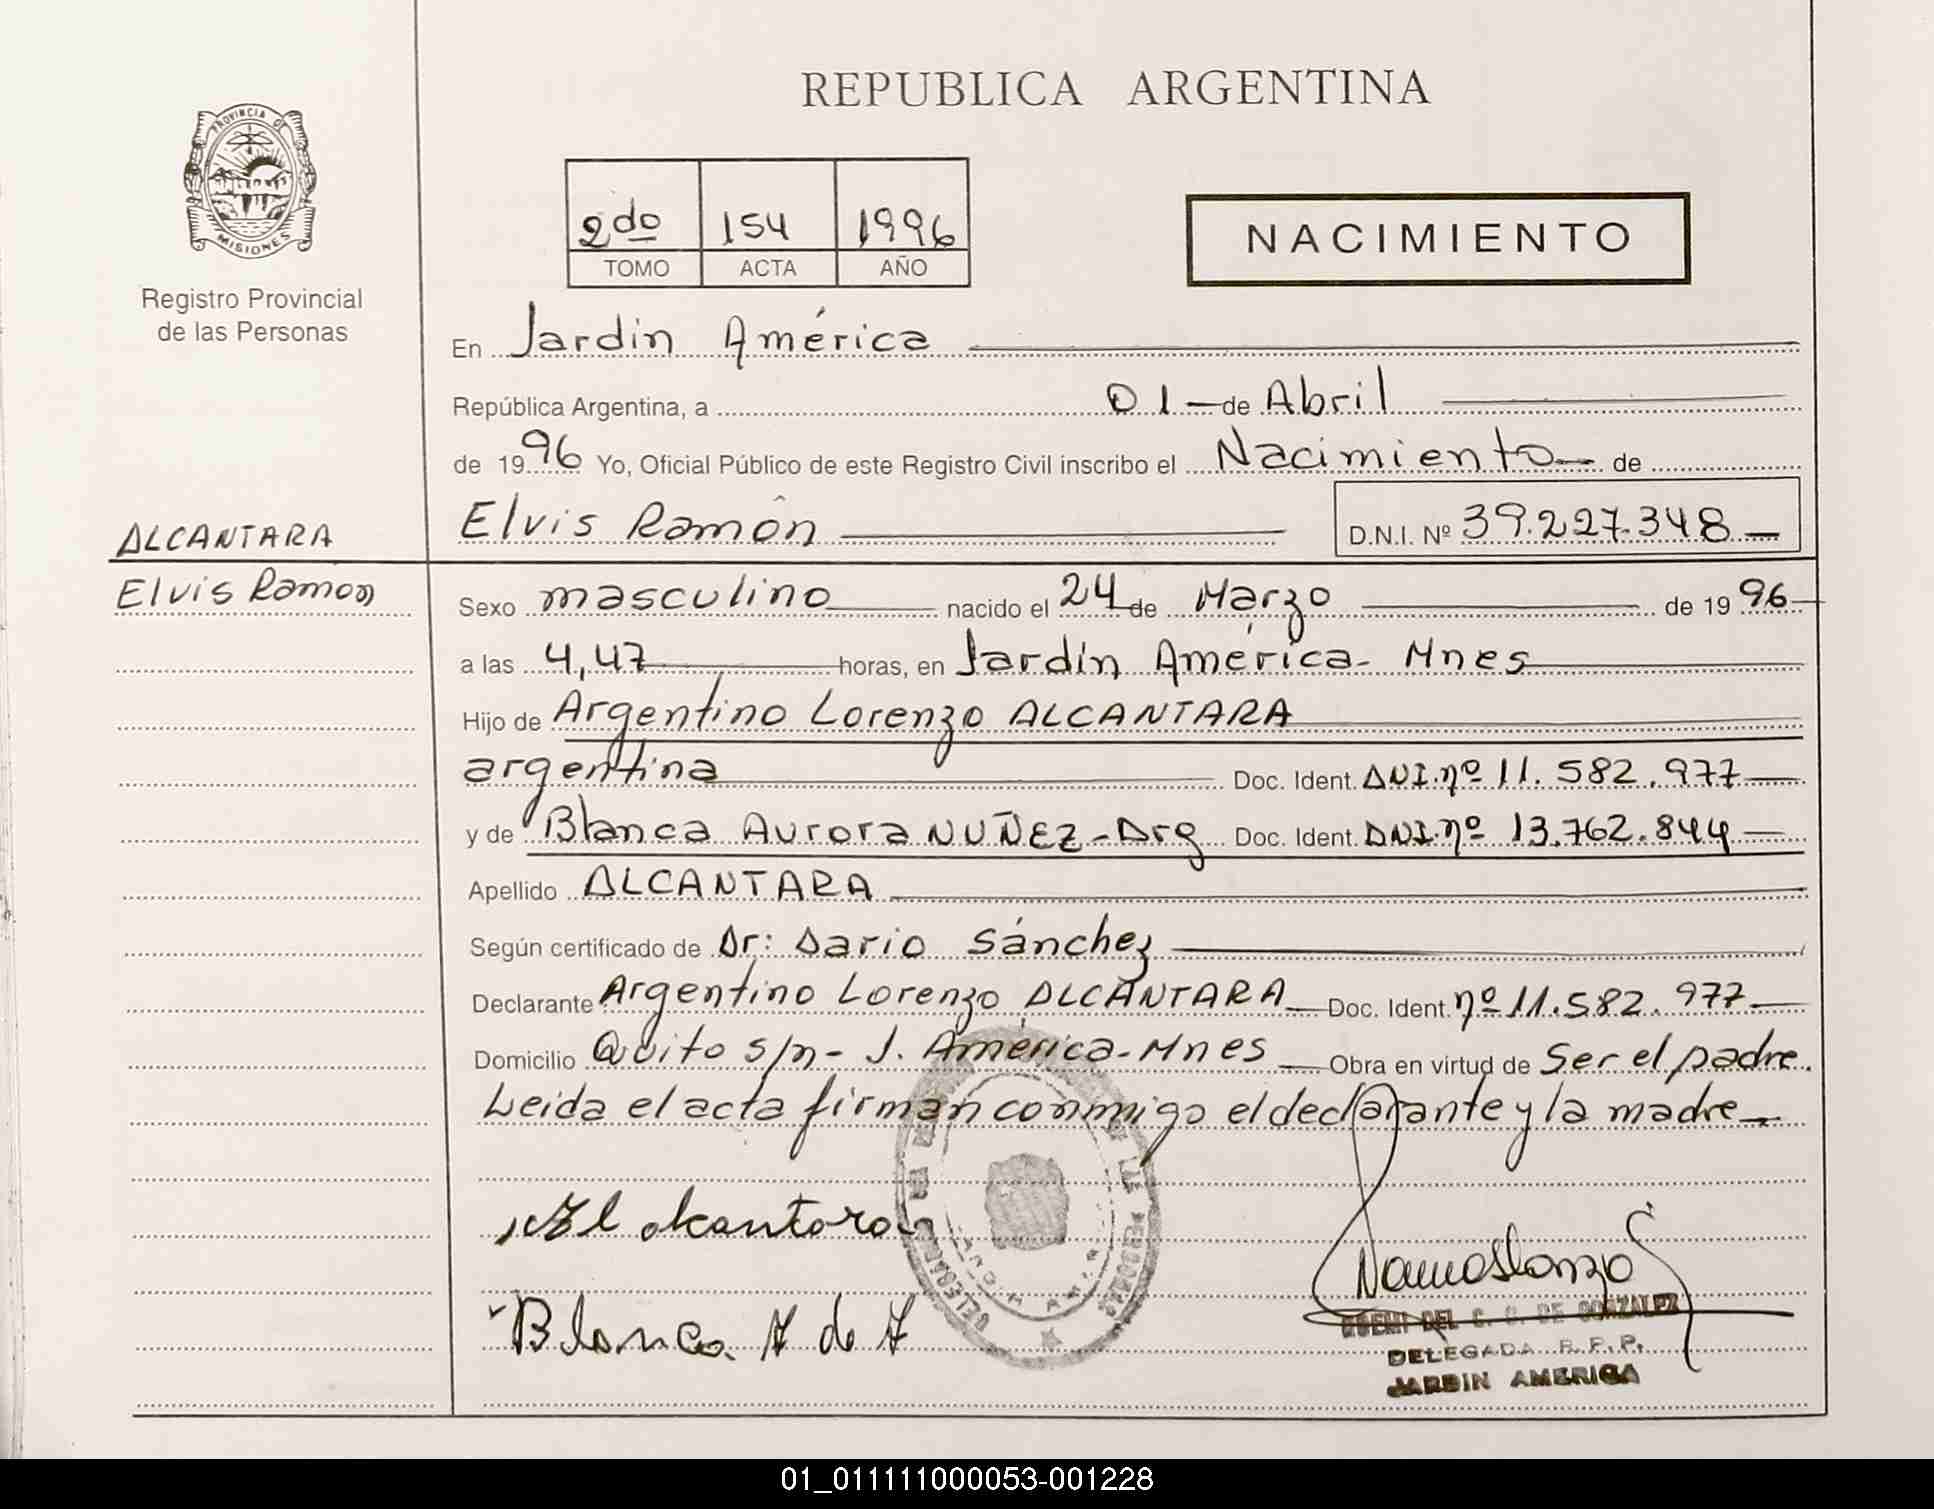 REPUBLICA ARGENTINA
PROVINCIA DE
MISIONES
Registro Provincial
de las Personas
2do 154 1996
TOMO ACTA AÑO
NACIMIENTO
En Jardín América
República Argentina, a 01 de Abril
de 1996 Yo, Oficial Público de este Registro Civil inscribo el Nacimiento de
Elvis Ramón D.N.I. Nº 39.227.348
ALCANTARA
Elvis Ramon
Sexo masculino nacido el 24 de Marzo de 1996
a las 4,47 horas, en Jardín América - Mnes
Hijo de Argentino Lorenzo ALCANTARA
argentina Doc. Ident. DNI.nº 11.582.977
y de Blanca Aurora NUÑEZ - Arg Doc. Ident. DNI.nº 13.762.844
Apellido ALCANTARA
Según certificado de Dr: Dario Sánchez
Declarante Argentino Lorenzo ALCANTARA Doc. Ident. nº 11.582.977
Domicilio Quito s/n - J. América - Mnes Obra en virtud de Ser el padre.
Leida el acta firman conmigo el declarante y la madre
Alcantara
Blanca de
DEL C. C. DE GONZALEZ
DELEGADA R.P.P.
JARDIN AMERICA
01_011111000053-001228